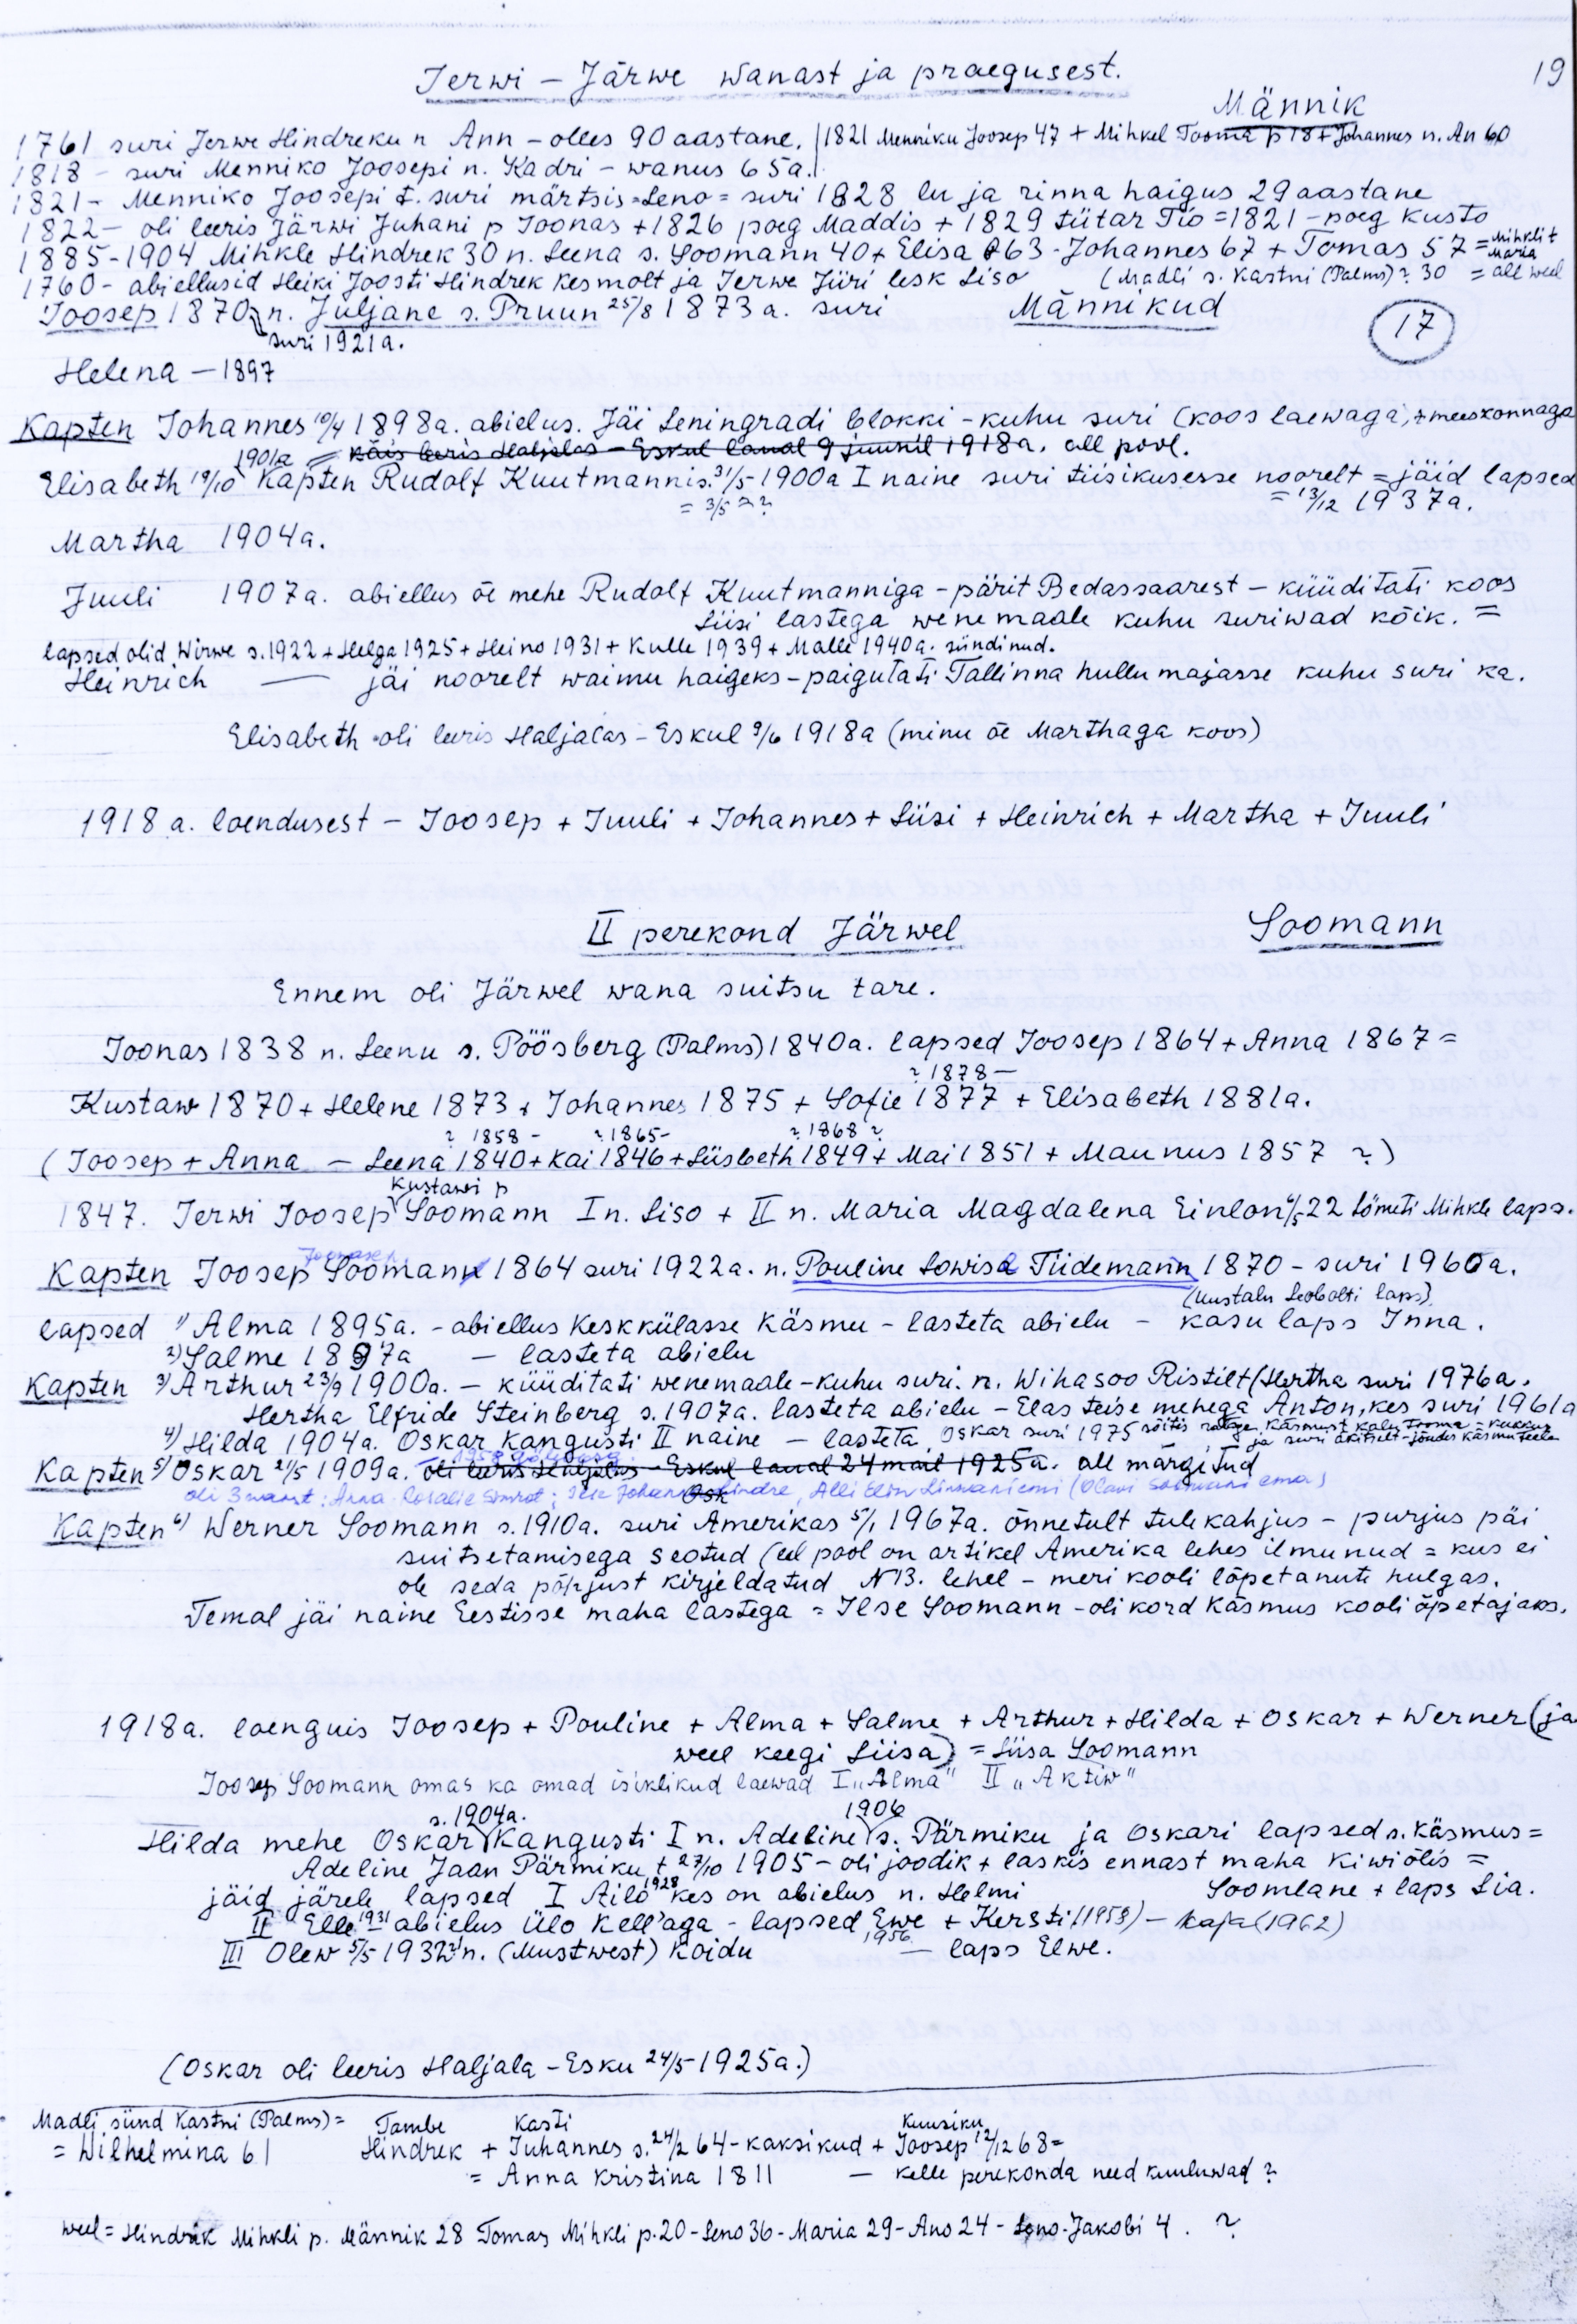 19
Jerwi – Järwe wanast ja praegusest.
Männik
1761 suri Jerwe Hindreku n Ann – olles 90 aastane. | 1821 Menniku Joosep 47 + Mihkel Tooma p 18 + Johannes n. An 60
1818 – suri Menniko Joosepi n. Kadri – wanus 65a.
1821 – Menniko Joosepi t. suri märtsis = Leno = suri 1828 lu ja rinna haigus 29 aastane
1822 – oli leeris Järwi Juhani p Joonas + 1826 poeg Maddis + 1829 tütar Tio = 1821 – poeg Kusto
1885-1904 Mihkle Hindrek 30 n. Leena s. Soomann 40 + Elisa 63 - Johannes 67 + Tomas 57 = Mihkli t Maria
1760 – abiellusid Heiki Joosti Hindrek Kesmolt ja Jerwe Jüri lesk Liso (Madli s. Kastni (Palms)? 30 = all weel
Joosep 1870 n. Juljane s. Pruun 25/8 1873 a. suri Männikud
suri 1921a.
17
Helena – 1897
Kapten Johannes 10/4 1898a. abielus. Jäi Leningradi blokki – kuhu suri (koos laewaga, + meeskonnaga
1901a = Käis leeris Haljalas – Eskul lanal 9 juunil 1918a. all pool.
Elisabeth 19/10 Kapten Rudolf Kuutmanni s. 31/5 - 1900a I naine suri tiisikusesse noorelt = jäid lapsed
= 3/5 ? = 13/12 1937a.
Martha 1904a.
Juuli 1907a. abiellus õe mehe Rudolf Kuutmanniga – pärit Bedassaarest – küüditati koos
Liisi lastega wenemaale kuhu suriwad kõik. =
lapsed olid Wirwe s. 1922 + Helga 1925 + Heino 1931 + Kulle 1939 + Malle 1940a. sündinud.
Heinrich — jäi noorelt waimu haigeks – paigutati Tallinna hullumajasse kuhu suri ka.
Elisabeth oli leeris Haljalas – Eskul 9/6 1918a (minu õe Marthaga koos)
1918 a. loendusest – Joosep + Juuli + Johannes + Liisi + Heinrich + Martha + Juuli
II perekond Järwel Soomann
Ennem oli Järwel wana suitsu tare.
Joonas 1838 n. Leenu s. Pöösberg (Palms) 1840a. lapsed Joosep 1864 + Anna 1867 =
? 1878 –
Kustaw 1870 + Helene 1873 + Johannes 1875 + Sofie 1877 + Elisabeth 1881a.
? 1858 – ? 1865 – ? 1868 ?
(Joosep + Anna – Leena 1840 + Kai 1846 + Liisbeth 1849 + Mai 1851 + Maunus 1857 ?)
Kustawi p
1847. Jerwi Joosep Soomann I n. Liso + II n. Maria Magdalena Einlon 6/5 22 Lömeti Mihkle laps.
Kapten Joosep Soomann 1864 suri 1922a. n. Pouline Lowisa Tiidemann 1870 – suri 1960a.
(Uustalu Leobolti laps)
lapsed 1) Alma 1895a. – abiellus Keskkülasse Käsmu – lasteta abielu – kasu laps Inna.
2) Salme 1897a – lasteta abielu
Kapten 3) Arthur 23/9 1900a. – küüditati wenemaale – kuhu suri. n. Wihasoo Ristilt (Hertha suri 1976a.
Hertha Elfride Steinberg s. 1907a. lasteta abielu – Elas teise mehega Anton, kes suri 1961a
4) Hilda 1904a. Oskar Kangusti II naine – lasteta, Oskar suri 1975 sõites Käsmust
ja suri äkitselt – jõudes Käsmu teele
Kapten 5) Oskar 21/5 1909a. oli leeris Haljalas – Eskul lanal 24 mail 1925a. all märgitud
oli 3 : Anna Rosalie ; Ilse , Alli Linnaniemi (Olavi Soomanni ema)
Kapten 6) Werner Soomann s. 1910a. suri Amerikas 5/1 1967a. õnnetult tulekahjus – purjus päi
suitsetamisega seotud (eel pool on artikel Amerika lehes ilmunud = kus ei
ole seda põhjust kirjeldatud N 13. lehel – meri kooli lõpetanute hulgas.
Temal jäi naine Eestisse maha lastega = Ilse Soomann – oli kord Käsmus kooli õpetajaks.
1918a. loenguis Joosep + Pouline + Alma + Salme + Arthur + Hilda + Oskar + Werner (ja
weel keegi Liisa) = Liisa Soomann
Joosep Soomann omas ka omad isiklikud laewad I „Alma" II „Aktiw"
s. 1904a. 1906
Hilda mehe Oskar Kangusti I n. Adeline s. Pärmiku ja Oskari lapsed s. Käsmus =
Adeline Jaan Pärmiku t 27/10 1905 – oli joodik + laskis ennast maha Kiwiõlis =
jäid järele lapsed I Ailo 1928 kes on abielus n. Helmi Soomlane + laps Lia.
II Elle 1931 abielus Ülo Kell'aga – lapsed Ewe 1956 + Kersti (1958) – Kaja (1962)
III Olew 5/5 1932 n. (Mustwest) Koidu — laps Elwe.
(Oskar oli leeris Haljala – Esku 24/5 – 1925a.)
Madli sünd Kastni (Palms) = Tambe Kasti Kuusiku
= Wilhelmina 61 Hindrek + Juhannes s. 24/2 64 – kaksikud + Joosep 12/12 68 =
= Anna Kristina 1811 — kelle perekonda need kuuluwad ?
weel = Hindrik Mihkli p. Männik 28 Tomas Mihkli p. 20 – Leno 36 – Maria 29 – Ano 24 – Leno Jakobi 4 . ?